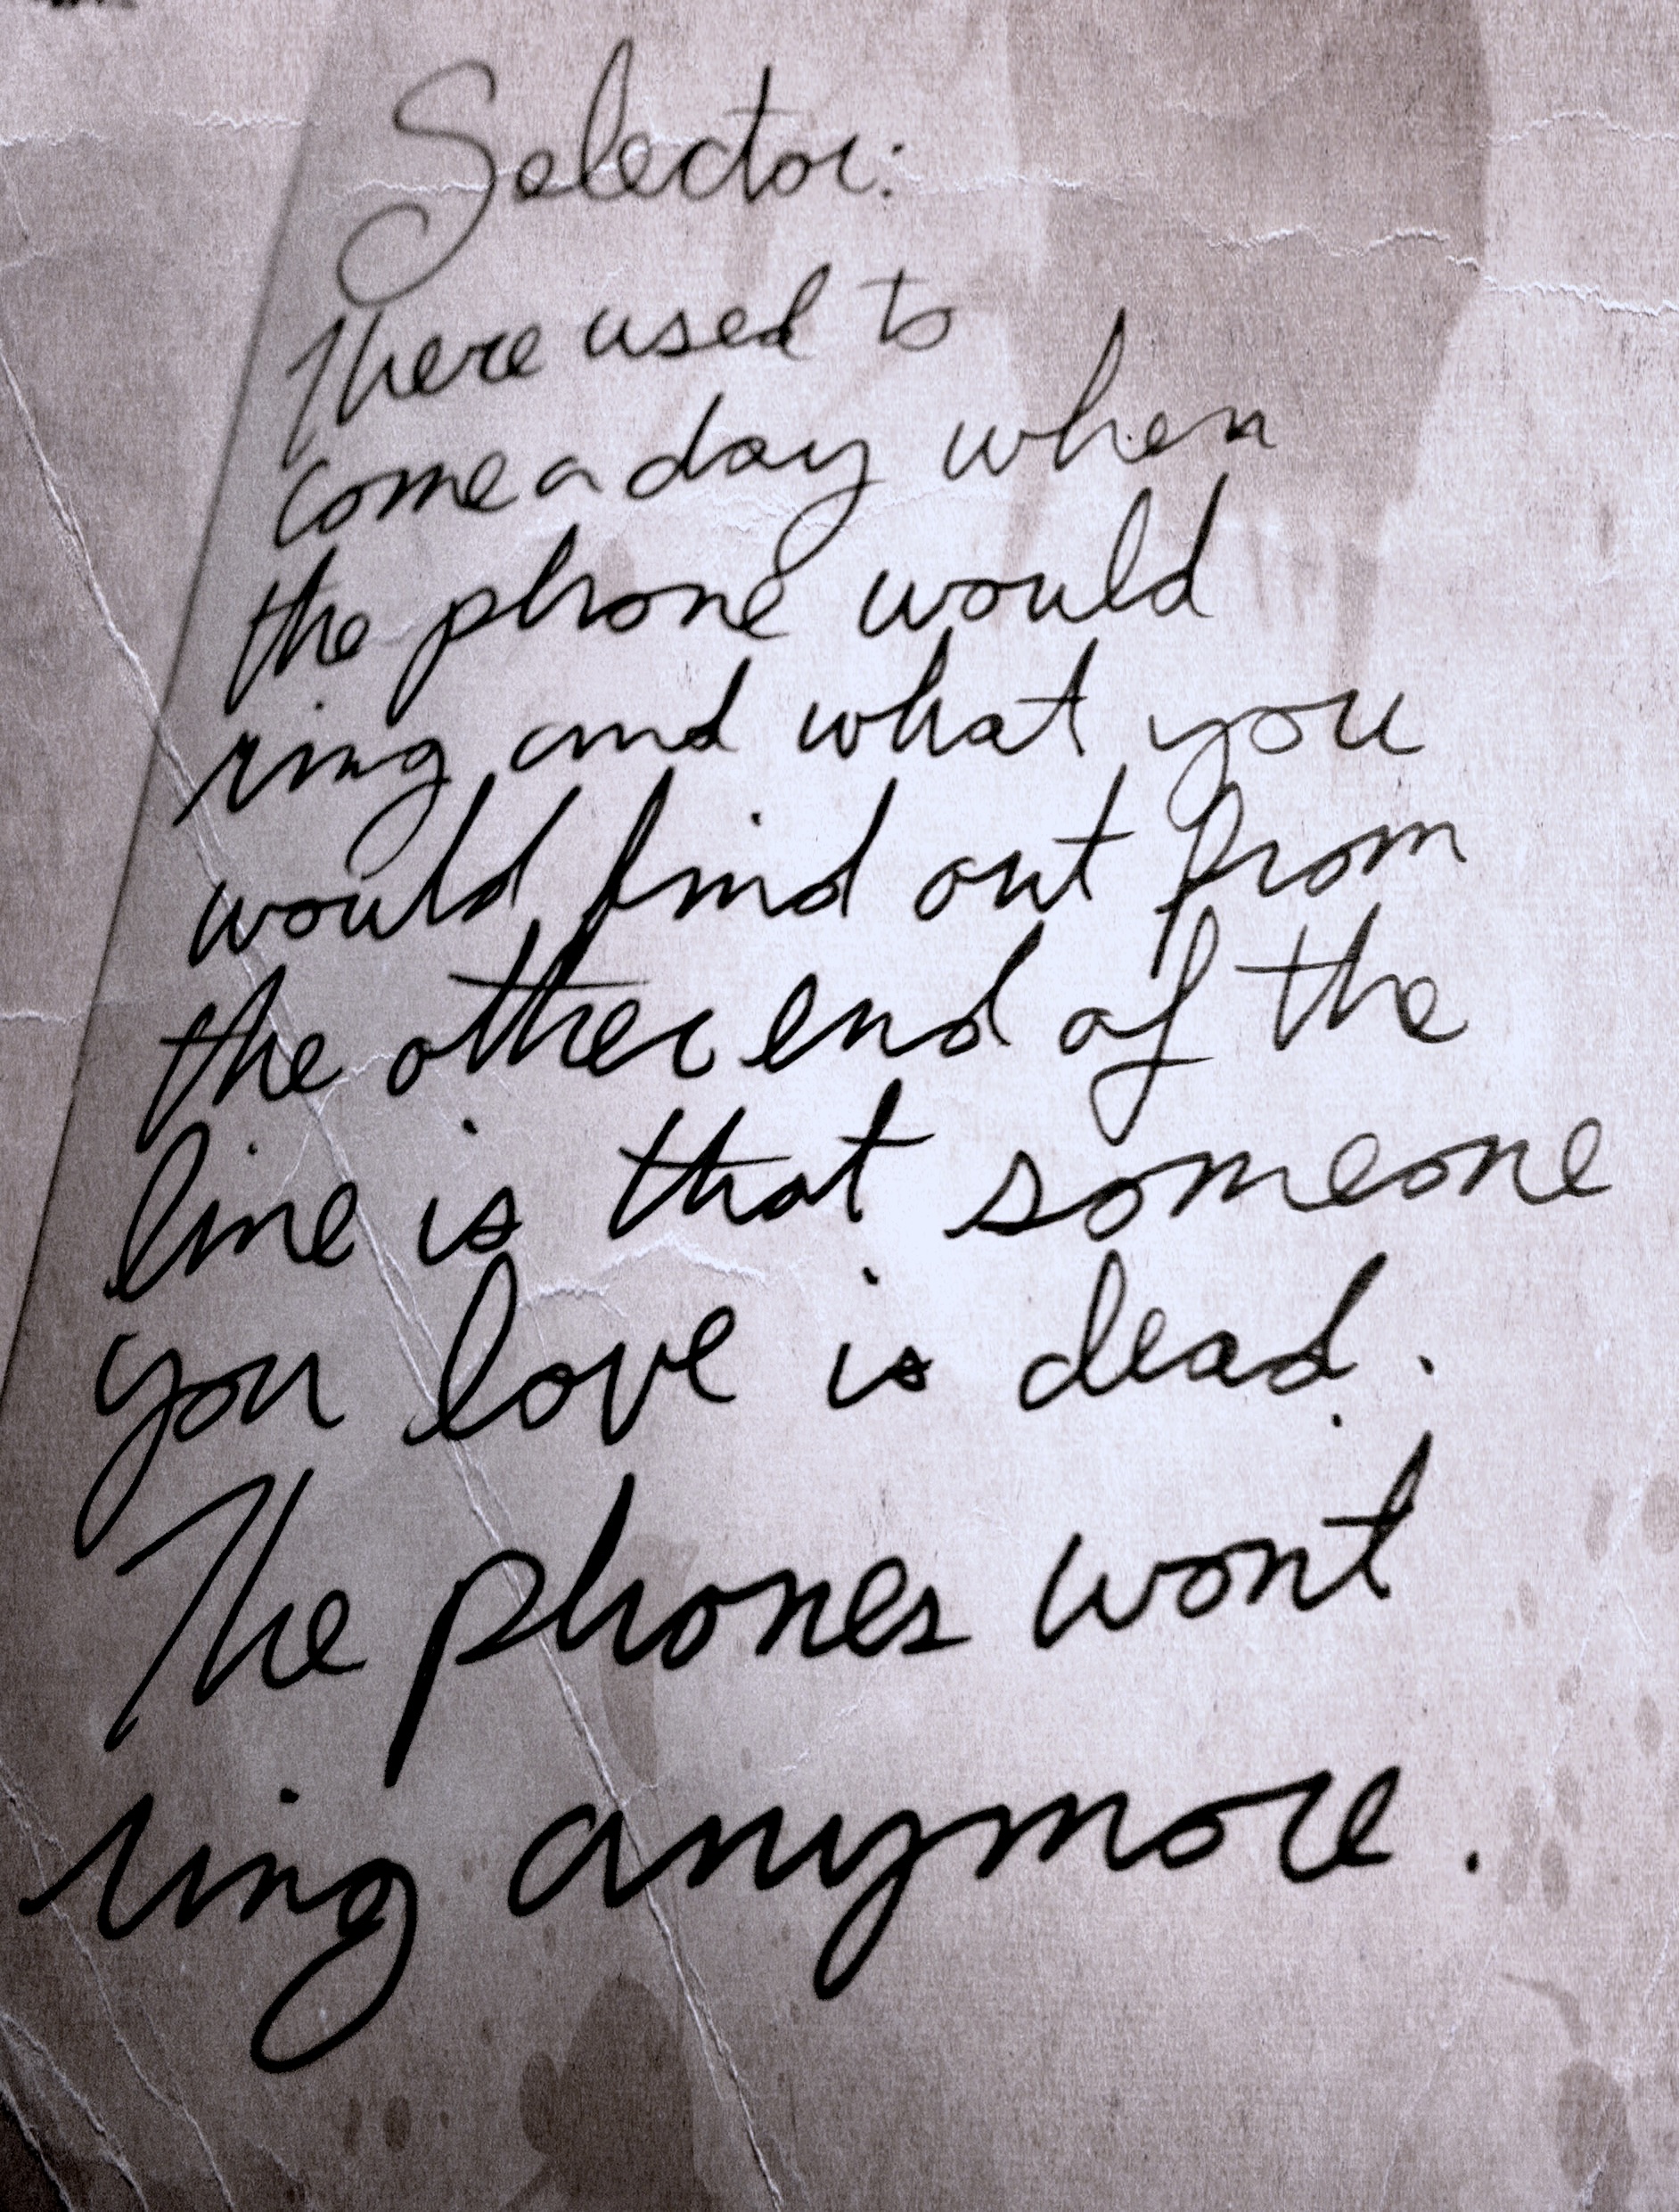 Selector:
There used to
come a day when
the phone would
ring and what you
would find out from
the other end of the
line is that someone
you love is dead.
The phones wont
ring anymore.